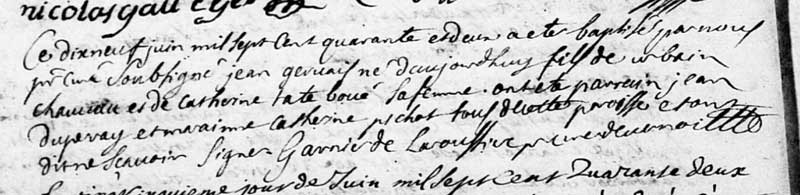 nicolas gall
Ce dixneuf juin mil sept cent quarante et deux a ete baptisé par nous
ptre curé soubsigné jean gervais né d'aujordhuy fils de urbain
chauveau et de catherine sa femme ont été parrain jean
duperay et maraine catherine pichot tous de cette paroisse et ont
dit ne sçavoir signer Garnier de Laroussiere
jour de Juin mil sept cent Quarante deux